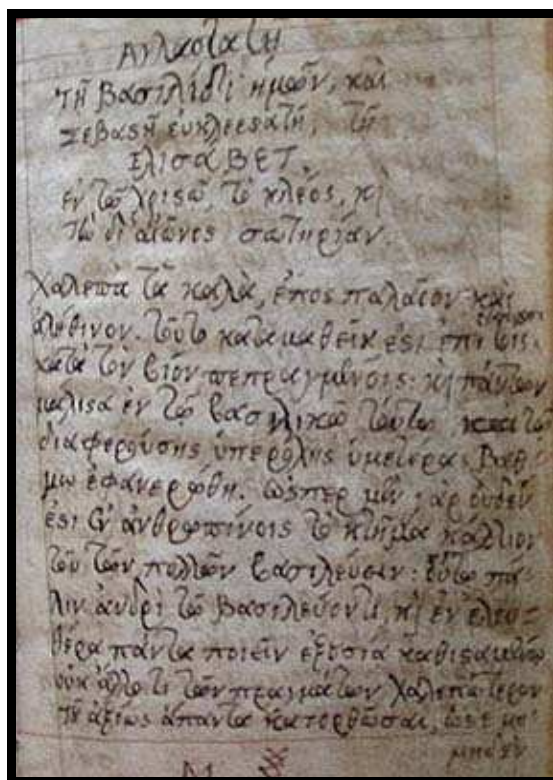 Αγλαοτάτῃ
τῇ βασιλίδι ἡμῶν, καὶ
Σεβαϛῇ εὐκλεεϛάτῃ, τῇ
Ελισάβετ.
ἐν τῷ χριϛῷ, τὸ κλέος, κ̀
τὼ δι' αἰῶνες σωτηρίαν.
Χαλεπὰ τὰ καλὰ, ἔπος παλαῖον καὶ
ἀλέθινον. τοῦτο καταμαθεῖν ἐϛὶ ἐπὶ τοῖς
κατὰ τὸν βίον πεπραγμένοις· κ̀ πάντων
μάλιϛα ἐν τῷ βασιλικῷ τούτῳ τῷ
διαφερούσης ὑπεροχῆς ὑμετέρας βαθ
μῷ ἐφανερώθη. ὥσπερ μὲν γὰρ οὐδέν
ἐϛι ἐν ἀνθρωπίνοις τὸ κτῆμα κάλλιον
τοῦ τῶν πολλῶν βασιλεύειν: οὕτω πά
λιν ἀνδρὶ τῷ βασιλεύοντι, κ̀ ἐν ἐλευ
θέρα πάντα ποιεῖν ἐξουσίᾳ καθιϛαμένῳ
οὐκ ἄλλό τι τῶν πραγμάτων χαλεπώτερον
τοῦ ἀξίως ἅπαντα κατορθῶσαι, ὥϛε μη
μηδὲν